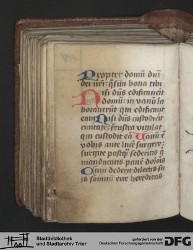 Propter domū dni
dei nri: q̄siui bona tibi
Nisi dn̄s edificauerit
domū: in vanū la
borauerūt qui edificant
eam Nisi dn̄s custodierit
ciuitatē: frustra vigilat
qui custodit eā Uanū ē
vobis ante lucē surgere:
surgite postq̄ sederitis q̄
manducatis panē doloris
Cum dederit dilectis su
is somnū: ecce hereditas
Stadtbibliothek
und Stadtarchiv Trier
gefördert von der
Deutschen Forschungsgemeinschaft
DFG